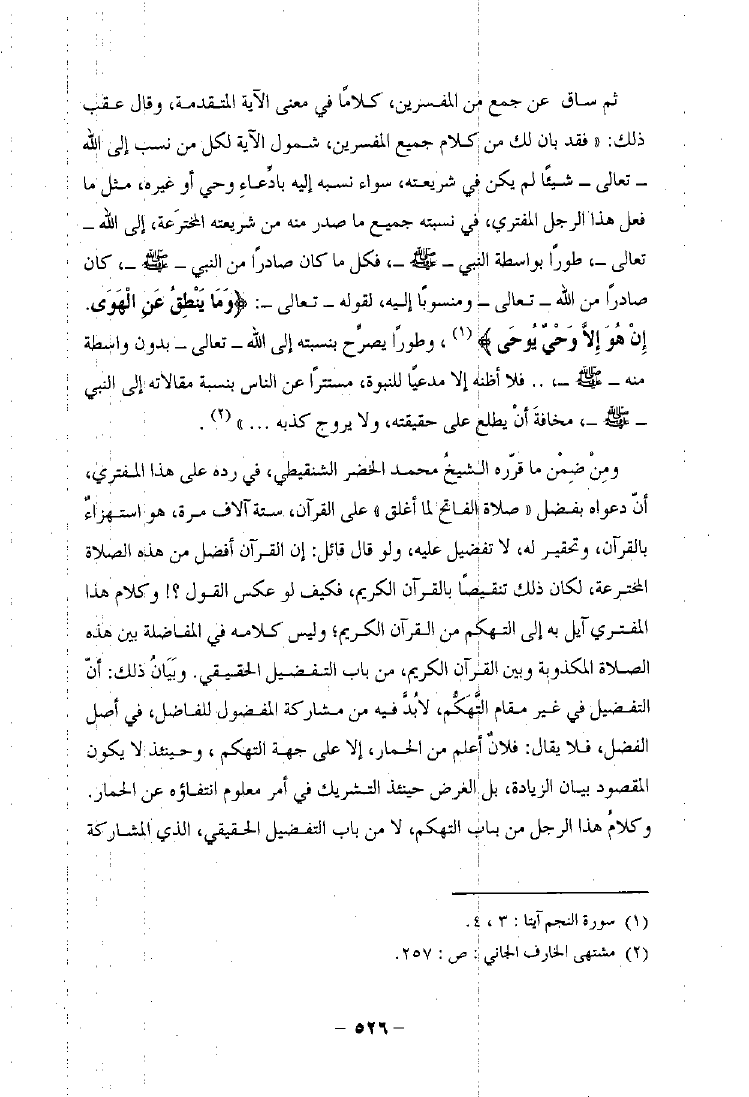 ثم ساق عن جمع من المفسرين، كلامًا في معنى الآية المتقدمة، وقال عقب
ذلك: « فقد بان لك من كلام جميع المفسرين، شمول الآية لكل من نسب إلى الله
ـ تعالى ـ شيئًا لم يكن في شريعته، سواء نسبه إليه بادِّعاءِ وحي أو غيره، مثل ما
فعل هذا الرجل المفتري، في نسبته جميع ما صدر منه من شريعته المخترَعة، إلى الله ـ
تعالى ـ، طورًا بواسطة النبي ـ ﷺ ـ، فكل ما كان صادرًا من النبي ـ ﷺ ـ، كان
صادرًا من الله ـ تعالى ـ ومنسوبًا إليه، لقوله ـ تعالى ـ: ﴿وَمَا يَنْطِقُ عَنِ الْهَوَى.
إِنْ هُوَ إِلاَّ وَحْيٌ يُوحَى ﴾ (١) ، وطورًا يصرِّح بنسبته إلى الله ـ تعالى ـ بدون واسطة
منه ـ ﷺ ـ، .. فلا أظنه إلا مدعيًا للنبوة، مستترًا عن الناس بنسبة مقالاته إلى النبي
ـ ﷺ ـ، مخافةَ أنْ يطلع على حقيقته، ولا يروج كذبه ... » (٢) .
ومِنْ ضِمْن ما قرّره الشيخُ محمد الخضر الشنقيطي، في رده على هذا المفتري،
أنّ دعواه بفضل « صلاة الفاتح لما أغلق » على القرآن، ستة آلاف مرة، هو استهزاءٌ
بالقرآن، وتحقير له، لا تفضيل عليه، ولو قال قائل: إن القرآن أفضل من هذه الصلاة
المخترعة، لكان ذلك تنقيصًا بالقرآن الكريم، فكيف لو عكس القول ؟! وكلام هذا
المفتري آيل به إلى التهكم من القرآن الكريم؛ وليس كلامه في المفاضلة بين هذه
الصلاة المكذوبة وبين القرآن الكريم، من باب التفضيل الحقيقي. وبَيَانُ ذلك: أنّ
التفضيل في غير مقام التَّهَكُّم، لابُدَّ فيه من مشاركة المفضول للفاضل، في أصل
الفضل، فلا يقال: فلانٌ أعلم من الحمار، إلا على جهة التهكم ، وحينئذ لا يكون
المقصود بيان الزيادة، بل الغرض حينئذ التشريك في أمر معلوم انتفاؤه عن الحمار.
وكلامُ هذا الرجل من باب التهكم، لا من باب التفضيل الحقيقي، الذي المشاركة
(١) سورة النجم آيتا : ٣ ، ٤.
(٢) مشتهى الخارف الجاني : ص : ٢٥٧.
– ٥٢٦ –